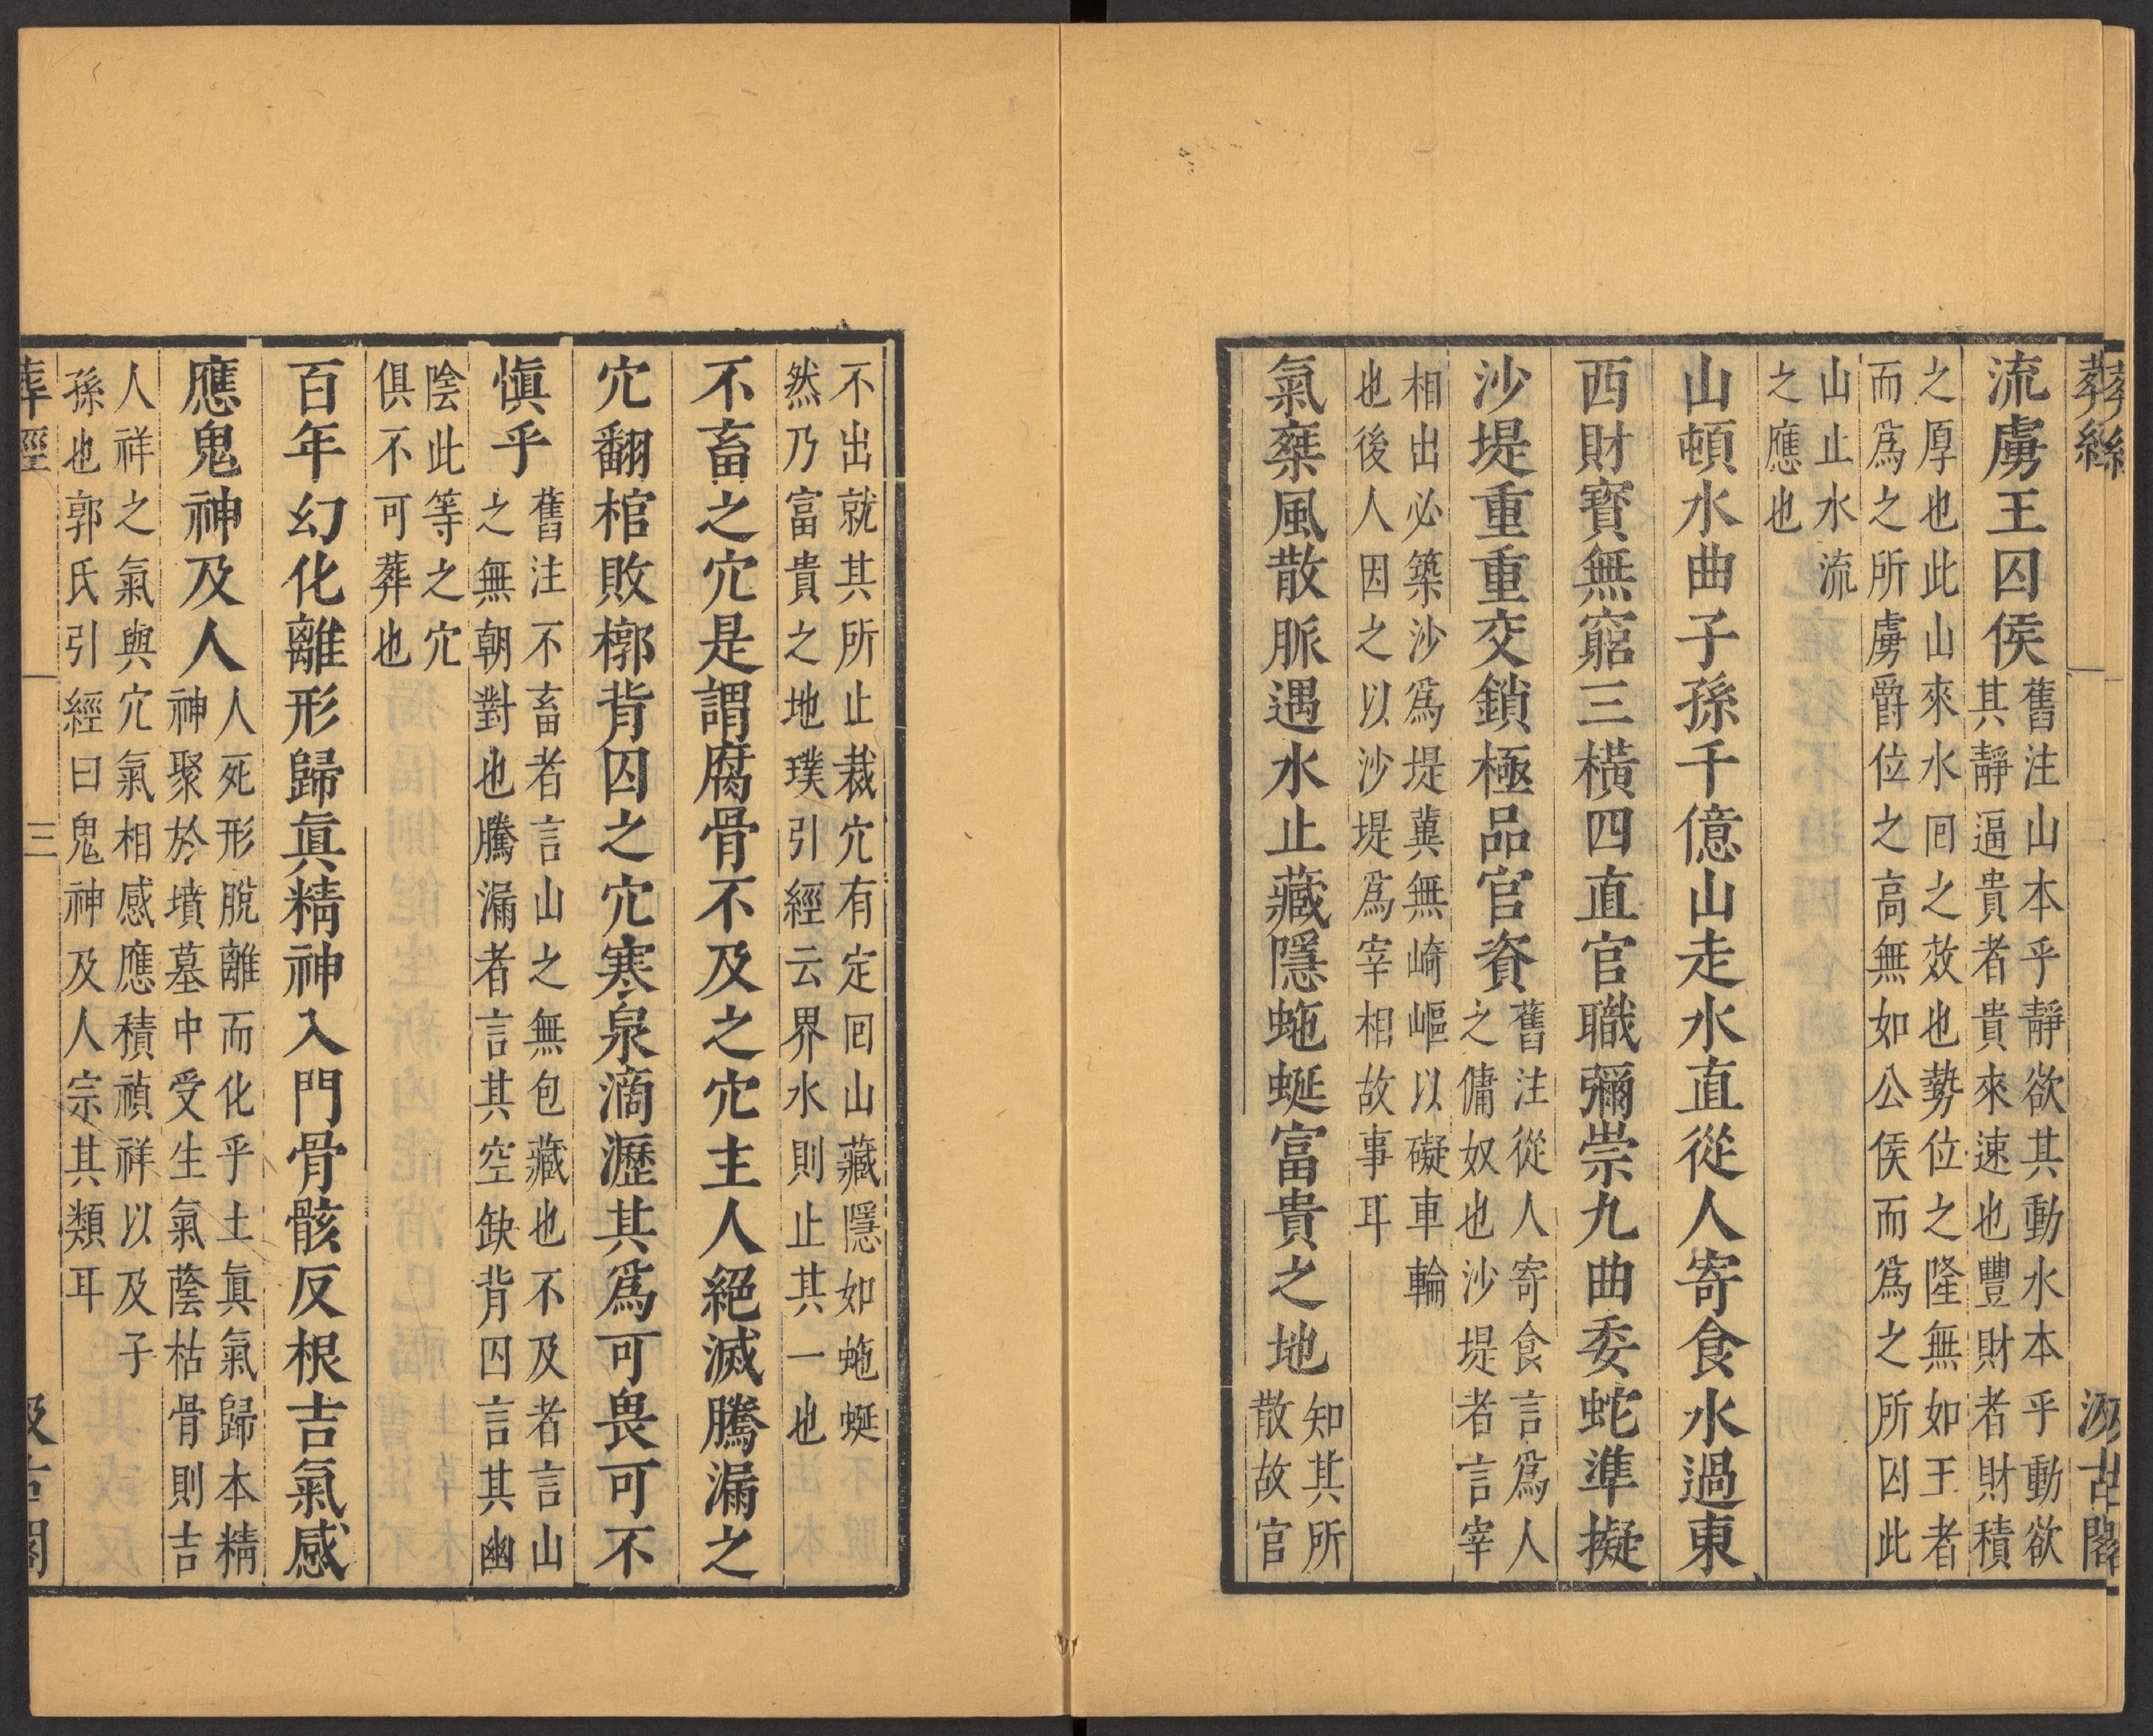 葬經
汲古閣
流虜王囚侯舊注山本乎靜欲其動水本乎動欲
其靜逼貴者貴來速也豐財者財積
之厚也此山來水囘之效也勢位之隆無如王者
而爲之所虜爵位之高無如公侯而爲之所囚此
山止水流
之應也
山頓水曲子孫千億山走水直從人寄食水過東
西財寳無窮三橫四直官職彌崇九曲委蛇準擬
沙堤重重交鎖極品官資舊注從人寄食言爲人
之傭奴也沙堤者言宰
相出必築沙爲堤冀無崎嶇以礙車輪
也後人因之以沙堤爲宰相故事耳
氣乘風散脈遇水止藏隱虵蜒富貴之地知其所
散故官
不出就其所止裁穴有定囘山藏隱如虵蜒
然乃富貴之地璞引經云界水則止其一也
不畜之穴是謂腐骨不及之穴主人絕滅騰漏之
穴翻棺敗槨背囚之穴寒泉滴瀝其爲可畏可不
愼乎舊注不畜者言山之無包藏也不及者言山
之無朝對也騰漏者言其空缺背囚言其幽
陰此等之穴
俱不可葬也
百年幻化離形歸眞精神入門骨骸反根吉氣感
應鬼神及人人死形脫離而化乎土眞氣歸本精
神聚於墳墓中受生氣蔭枯骨則吉
人祥之氣與穴氣相感應積禎祥以及子
孫也郭氏引經曰鬼神及人宗其類耳
葬經
三
汲古閣